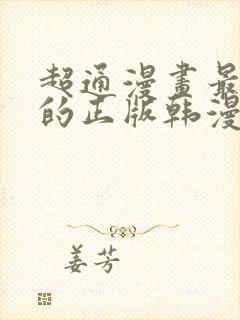 超通漫畫最
的正版韩漫
姜芳